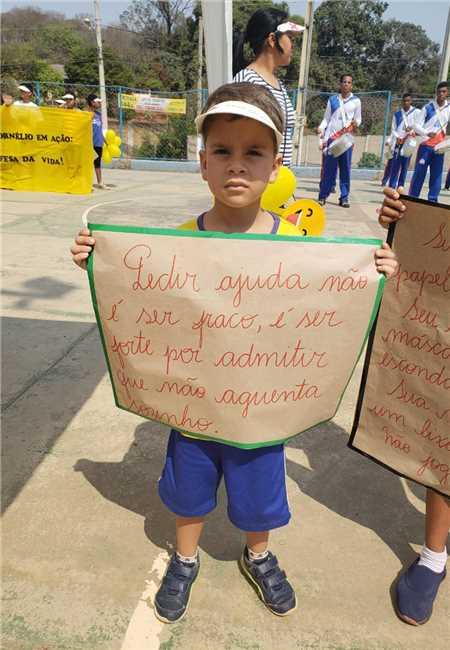 ORNÉLIO EM AÇÃO:
FESA DA VIDA!
Pedir ajuda não
é ser fraco, é ser
forte por admitir
que não aguenta
sozinho.
Se
papel
Seu
másca
esconda
Sua
um lix
não jog